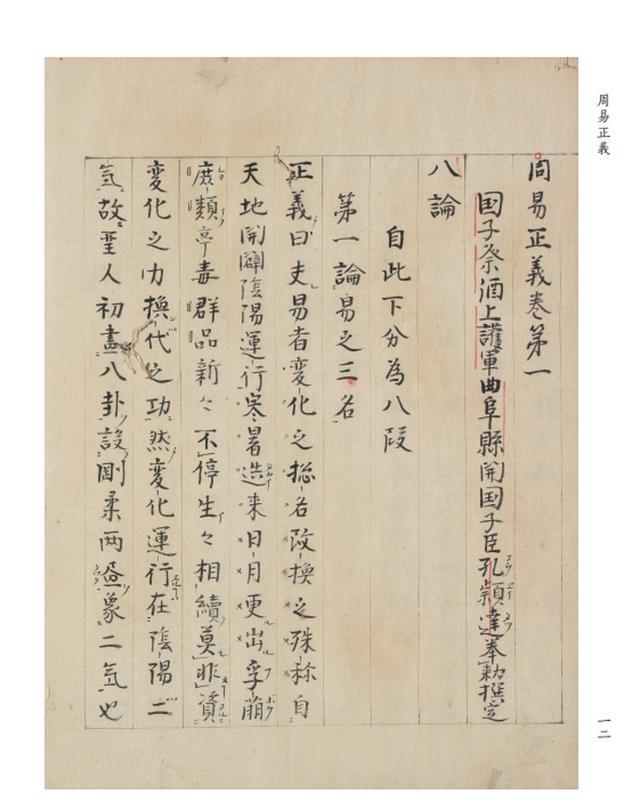 周易正義
周易正義巻第一
国子祭酒上護軍曲阜縣開国子臣孔穎達奉勅撰定
八論
自此下分為八段
第一論易之三名
正義曰夫易者変化之惣名改換之殊称自
天地開闢陰陽運行寒暑迭来日月更出孚萌
庶類亭毒群品新々不停生々相續莫非資
変化之力換代之功然変化運行在陰陽二
氣故聖人初畫八卦設剛柔両畫象二氣也
一二